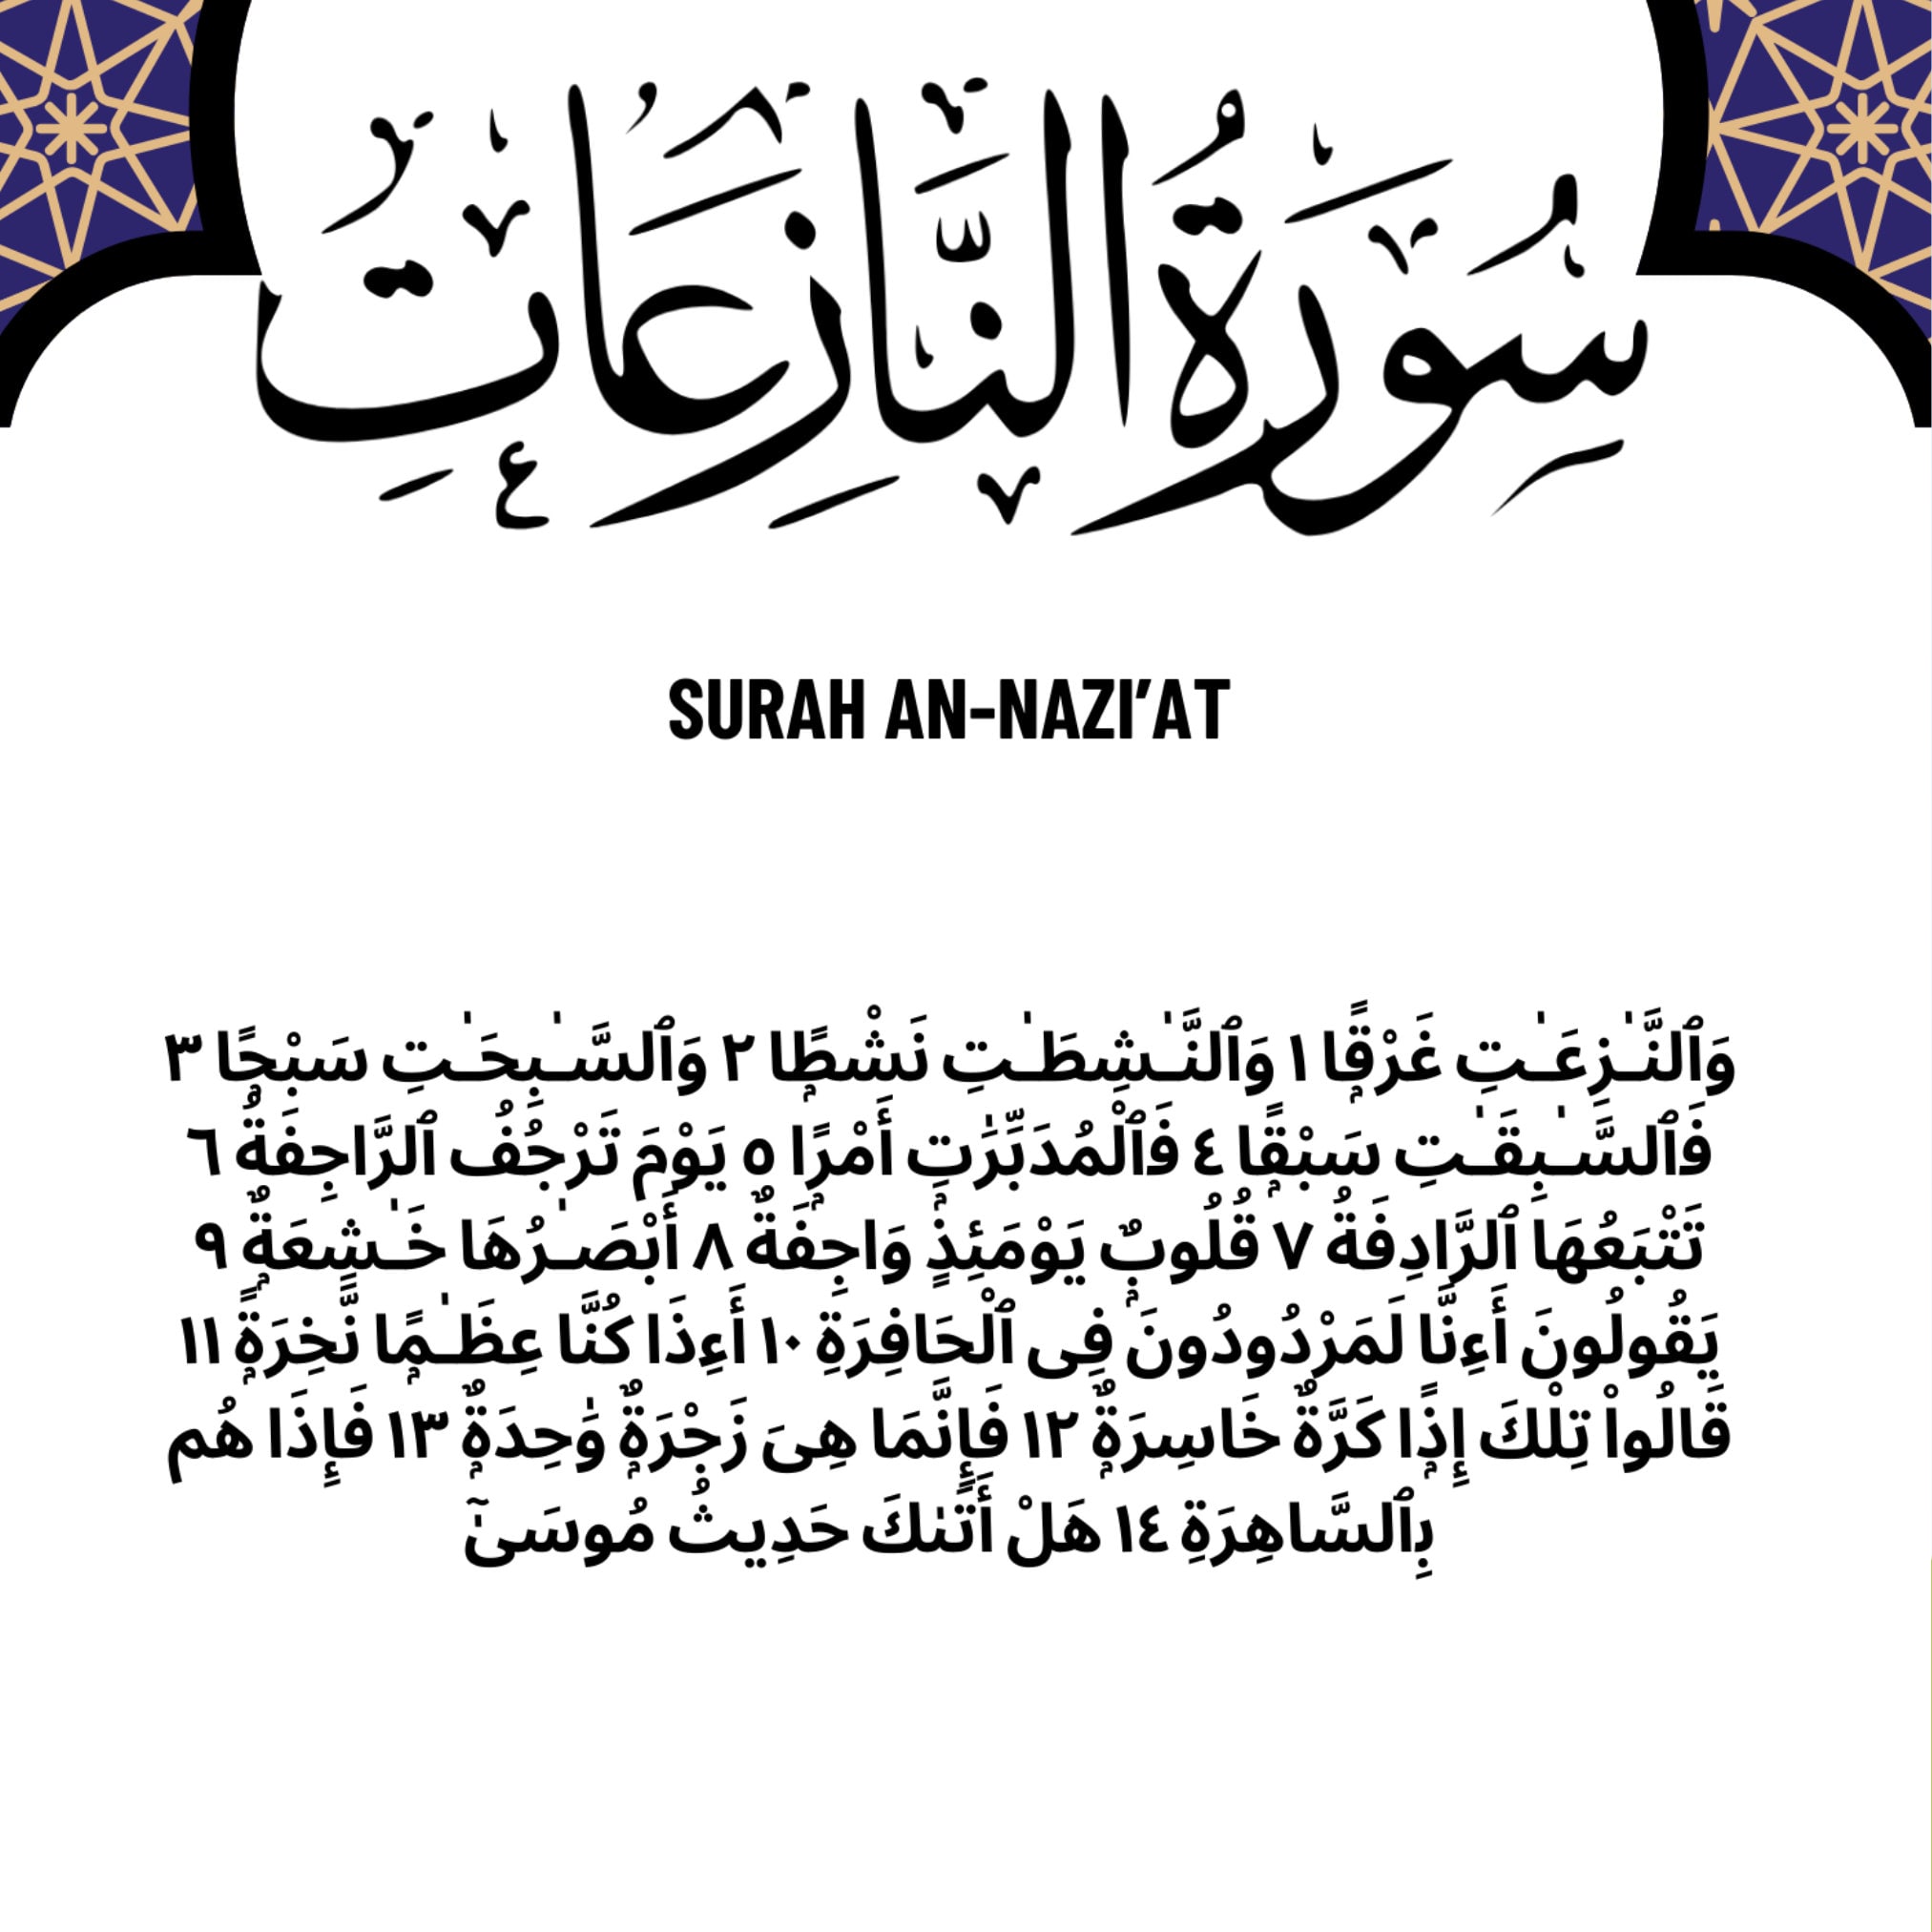 سُورَةُ النَّازِعَاتِ
SURAH AN-NAZI'AT
وَٱلنَّـٰزِعَـٰتِ غَرْقًۭا ١ وَٱلنَّـٰشِطَـٰتِ نَشْطًۭا ٢ وَٱلسَّـٰبِحَـٰتِ سَبْحًۭا ٣
فَٱلسَّـٰبِقَـٰتِ سَبْقًۭا ٤ فَٱلْمُدَبِّرَٰتِ أَمْرًۭا ٥ يَوْمَ تَرْجُفُ ٱلرَّاجِفَةُ ٦
تَتْبَعُهَا ٱلرَّادِفَةُ ٧ قُلُوبٌۭ يَوْمَئِذٍۢ وَاجِفَةٌ ٨ أَبْصَـٰرُهَا خَـٰشِعَةٌۭ ٩
يَقُولُونَ أَءِنَّا لَمَرْدُودُونَ فِى ٱلْحَافِرَةِ ١٠ أَءِذَا كُنَّا عِظَـٰمًۭا نَّخِرَةًۭ ١١
قَالُوا۟ تِلْكَ إِذًۭا كَرَّةٌ خَاسِرَةٌۭ ١٢ فَإِنَّمَا هِىَ زَجْرَةٌۭ وَٰحِدَةٌۭ ١٣ فَإِذَا هُم
بِٱلسَّاهِرَةِ ١٤ هَلْ أَتَىٰكَ حَدِيثُ مُوسَىٰٓ